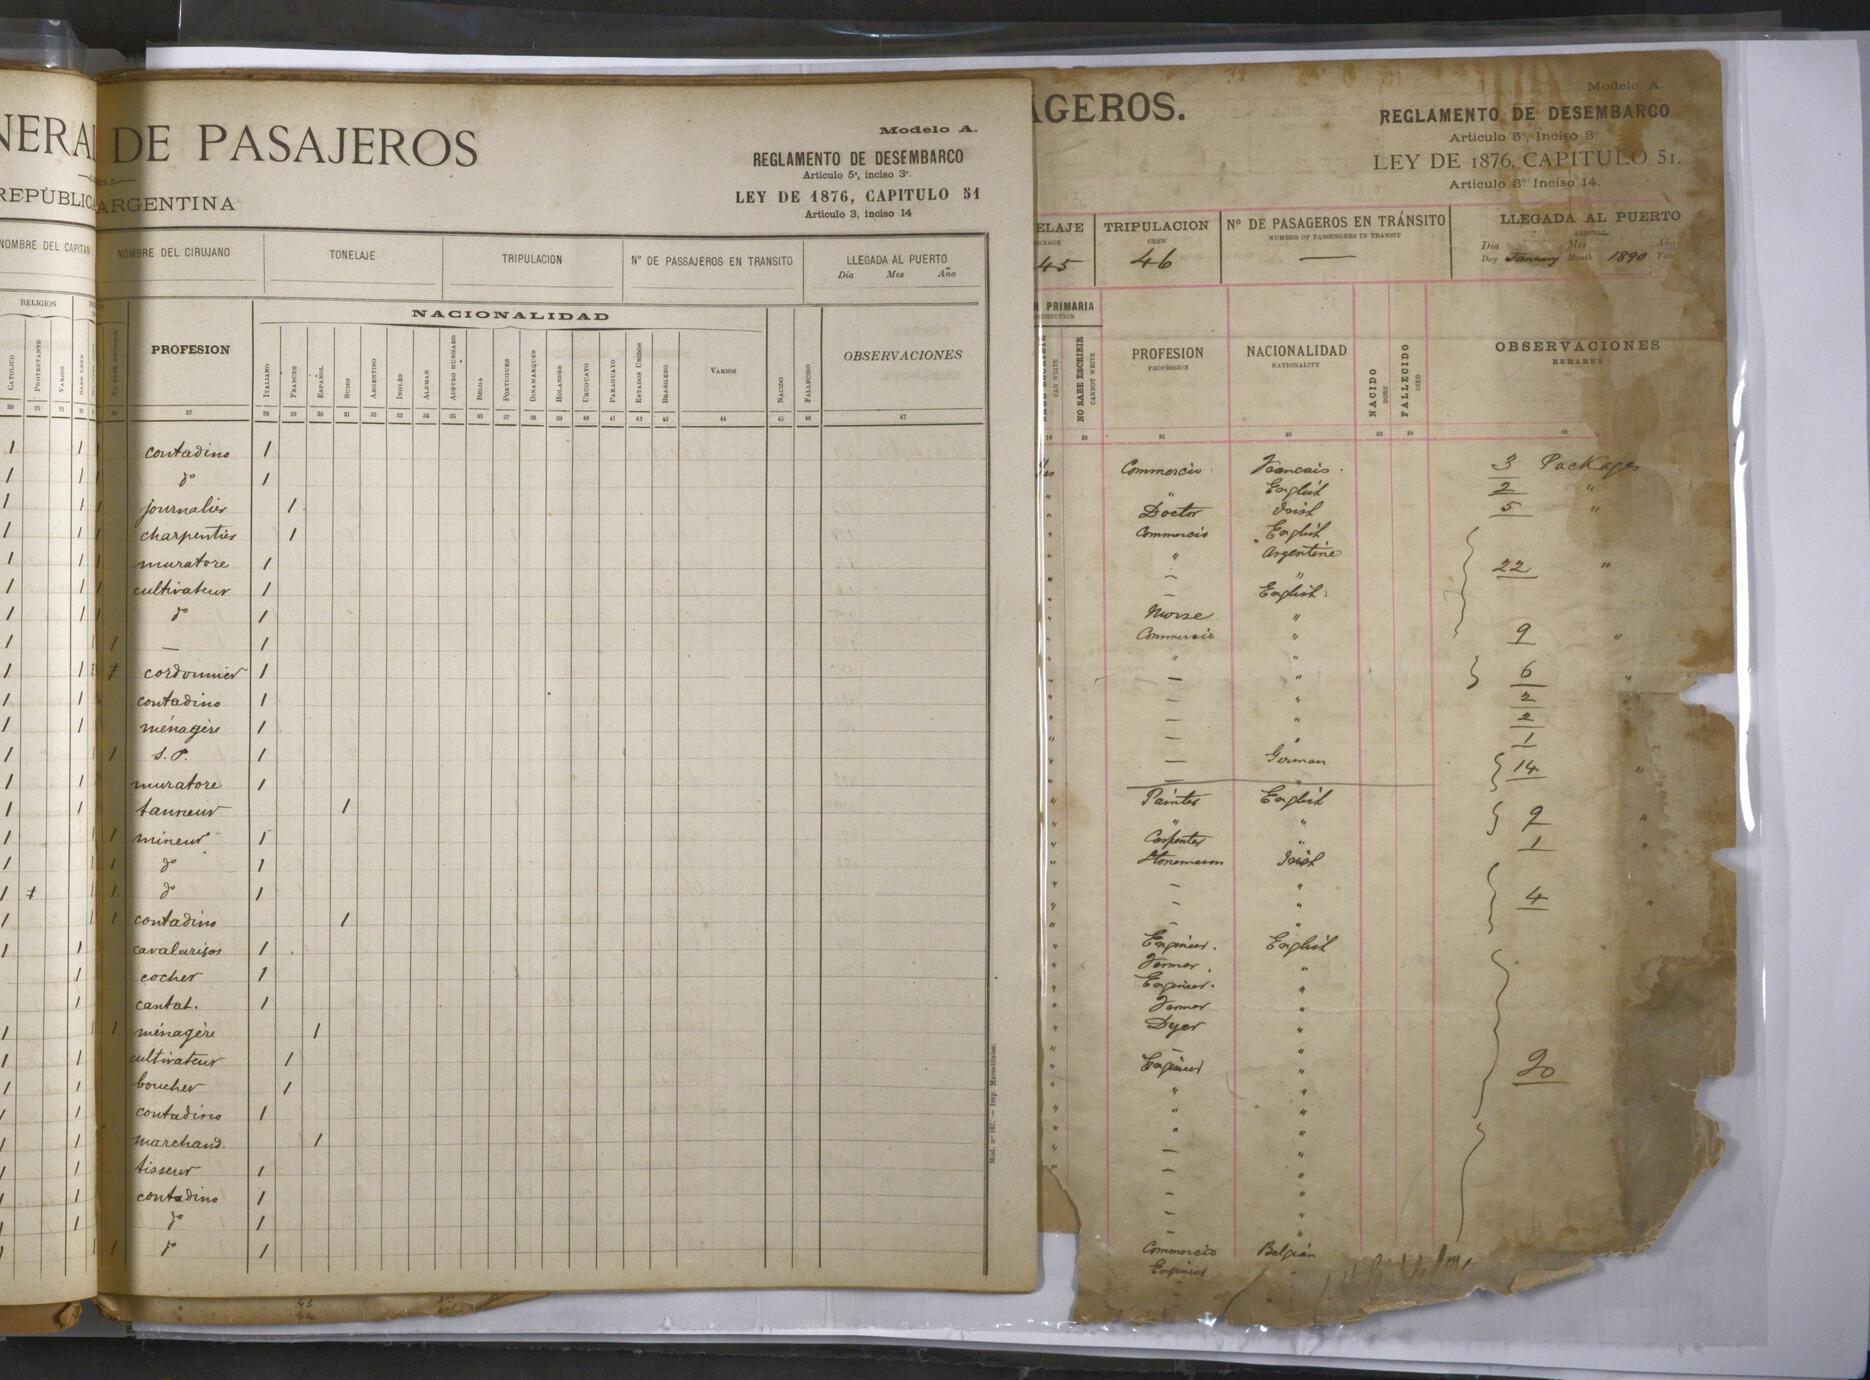 NERAL DE PASAJEROS
REPÚBLICA ARGENTINA
Modelo A.
REGLAMENTO DE DESEMBARCO
Articulo 5º, inciso 3º.
LEY DE 1876, CAPITULO 51
Articulo 3, inciso 14
NOMBRE DEL CAPITAN
NOMBRE DEL CIRUJANO
TONELAJE
TRIPULACION
Nº DE PASSAJEROS EN TRANSITO
LLEGADA AL PUERTO
Dia Mes Año
RELIGION
CATOLICO
PROTESTANTE
VARIOS
PROFESION
NACIONALIDAD
ITALIANO
FRANCES
ESPAÑOL
SUIZO
ARGENTINO
INGLÉS
ALEMAN
AUSTRO HUNGARO
BELGA
PORTUGUES
DINAMARQUES
HOLANDES
URUGUAYO
PARAGUAYO
ESTADOS UNIDOS
BRASILERO
VARIOS
NACIDO
FALLECIDO
OBSERVACIONES
20 21 22 27 28 29 30 31 32 33 34 35 36 37 38 39 40 41 42 43 44 45 46 47
1 1 contadino 1
1 1 dº 1
1 1 journalier 1
1 1 charpentier 1
1 1 muratore 1
1 1 cultivateur 1
1 1 dº 1
1 1 — 1
1 1 cordonnier 1
1 1 contadino 1
1 1 ménagère 1
1 1 S.P. 1
1 1 muratore 1
1 1 tanneur 1
1 1 mineur 1
1 1 dº 1
1 1 dº 1
1 1 contadino 1
1 1 cavalarisos 1
1 cocher 1
1 cantat. 1
1 1 ménagère 1
1 1 cultivateur 1
1 1 boucher 1
1 1 contadino 1
1 1 marchand 1
1 1 tisseur 1
1 1 contadino 1
1 1 dº 1
1 1 dº 1
Mod. nº 167. — Imp. Marseillaise.
43
44
AGEROS.
Modelo A.
REGLAMENTO DE DESEMBARCO
Articulo 5º, Inciso 3º
LEY DE 1876, CAPITULO 51.
Articulo 3º Inciso 14.
ELAJE
TRIPULACION
CREW
Nº DE PASAGEROS EN TRÁNSITO
NUMBER OF PASSENGERS IN TRANSIT
LLEGADA AL PUERTO
ARRIVAL
Dia Mes Año
45 46 — Day January Month 1890 Year
N PRIMARIA
STRUCTION
CAN WRITE
NO SABE ESCRIBIR
CANNOT WRITE
PROFESION
PROFESSION
NACIONALIDAD
NATIONALITY
NACIDO
BORN
FALLECIDO
DIED
OBSERVACIONES
REMARKS
Yes Commercio Francais. 3 Packages
" " English 2 "
" Doctor Irish 5 "
" Commercio English
" " Argentine
" — " 22 "
" — English.
" Nurse "
" Commercio " 9 "
" " "
" — " 6 "
" — " 2 "
" — " 2 "
" — " 1
" — German 14 "
" — "
" Painter English
" " " 9 "
" Carpenter " 1 "
" Stonemason Irish
" — "
" — " 4 "
" — "
" Engineer. English
" Farmer. "
" Engineer. "
" Farmer "
" Dyer "
" — "
" Engineer " 20
" " "
" " "
" " "
" — "
" — "
— "
— "
Commercio Belgian
Engineer